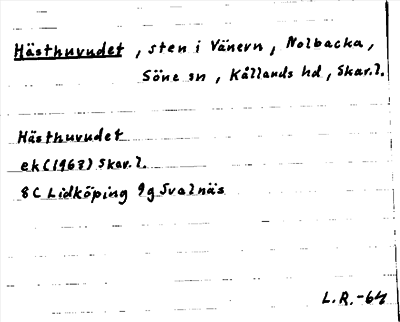 Hästhuvudet, sten i Vänern, Nolbacka,
Söne sn, Kållands hd, Skar.l.
Hästhuvudet
ek (1963) Skar.l.
8C Lidköping 9g Svalnäs
L.R.-64